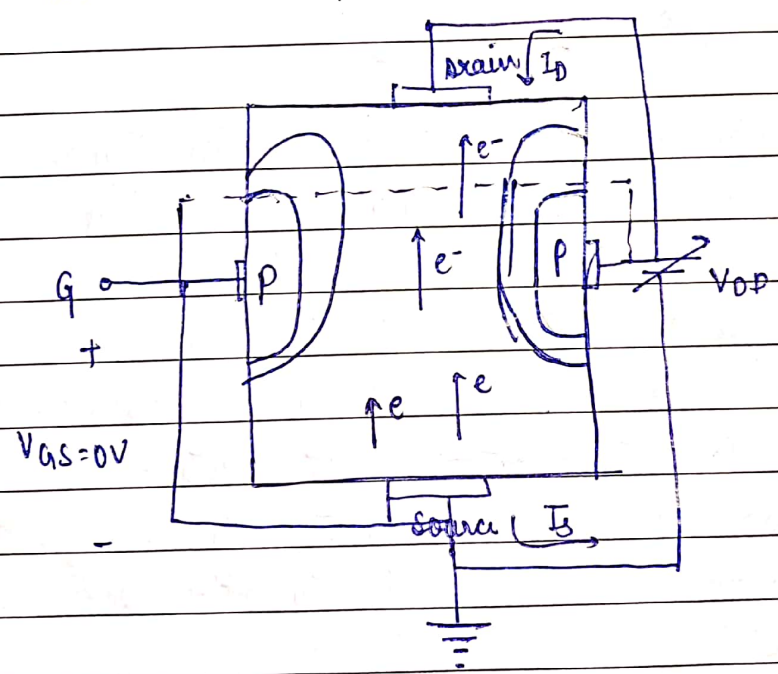 Drain I_D
e-
P
P
e-
G
V_DD
+
e
e
V_GS=0V
Source I_S
-